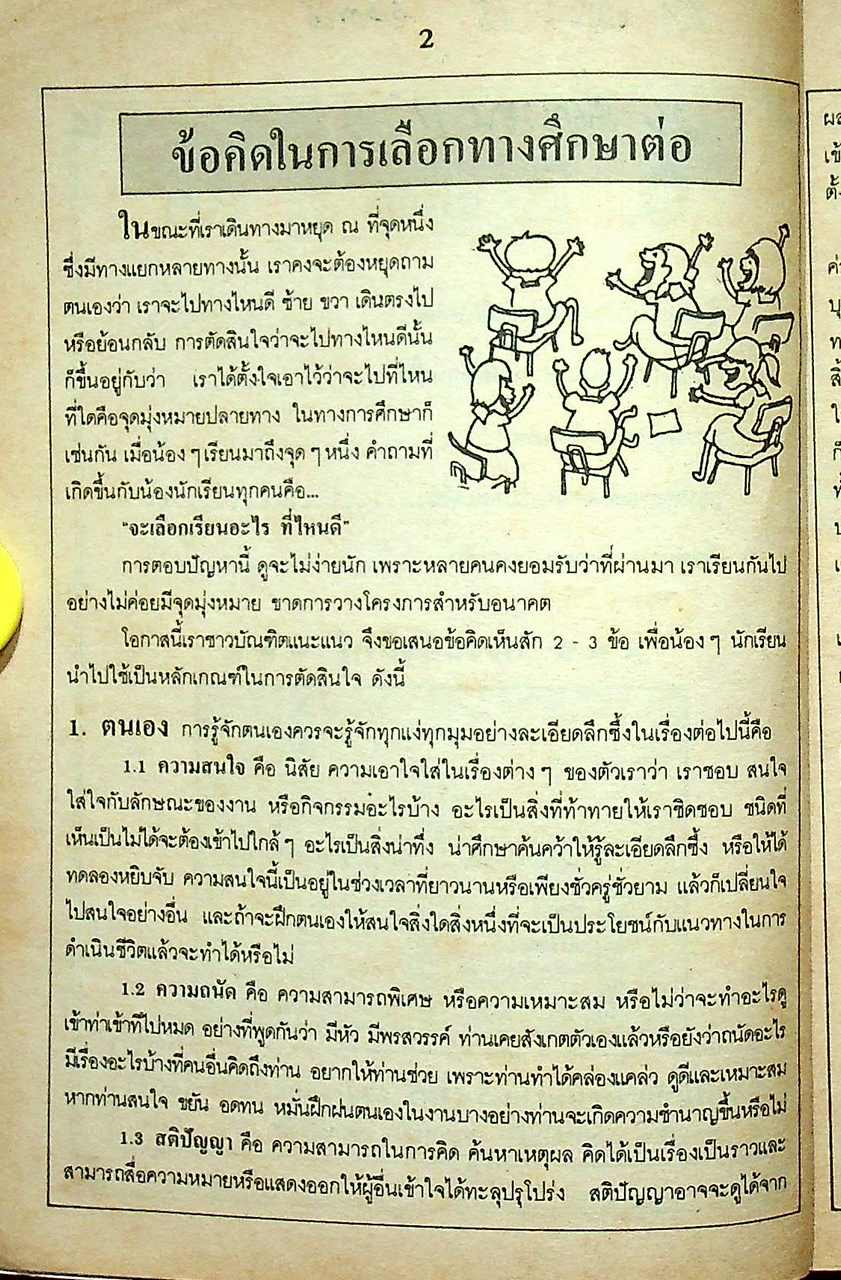 2
ข้อคิดในการเลือกทางศึกษาต่อ
ในขณะที่เราเดินทางมาหยุด ณ ที่จุดหนึ่ง
ซึ่งมีทางแยกหลายทางนั้น เราคงจะต้องหยุดถาม
ตนเองว่า เราจะไปทางไหนดี ซ้าย ขวา เดินตรงไป
หรือย้อนกลับ การตัดสินใจว่าจะไปทางไหนดีนั้น
ก็ขึ้นอยู่กับว่า เราได้ตั้งใจเอาไว้ว่าจะไปที่ไหน
ที่ใดคือจุดมุ่งหมายปลายทาง ในทางการศึกษาก็
เช่นกัน เมื่อน้อง ๆ เรียนมาถึงจุด ๆ หนึ่ง คำถามที่
เกิดขึ้นกับน้องนักเรียนทุกคนคือ...
"จะเลือกเรียนอะไร ที่ไหนดี"
การตอบปัญหานี้ ดูจะไม่ง่ายนัก เพราะหลายคนคงยอมรับว่าที่ผ่านมา เราเรียนกันไป
อย่างไม่ค่อยมีจุดมุ่งหมาย ขาดการวางโครงการสำหรับอนาคต
โอกาสนี้เราชาวบัณฑิตแนะแนว จึงขอเสนอข้อคิดเห็นสัก 2 - 3 ข้อ เพื่อน้อง ๆ นักเรียน
นำไปใช้เป็นหลักเกณฑ์ในการตัดสินใจ ดังนี้
1. ตนเอง การรู้จักตนเองควรจะรู้จักทุกแง่ทุกมุมอย่างละเอียดลึกซึ้งในเรื่องต่อไปนี้คือ
1.1 ความสนใจ คือ นิสัย ความเอาใจใส่ในเรื่องต่าง ๆ ของตัวเราว่า เราชอบ สนใจ
ใส่ใจกับลักษณะของงาน หรือกิจกรรมอะไรบ้าง อะไรเป็นสิ่งที่ท้าทายให้เราชิดชอบ ชนิดที่
เห็นเป็นไม่ได้จะต้องเข้าไปใกล้ ๆ อะไรเป็นสิ่งน่าทึ่ง น่าศึกษาค้นคว้าให้รู้ละเอียดลึกซึ้ง หรือให้ได้
ทดลองหยิบจับ ความสนใจนี้เป็นอยู่ในช่วงเวลาที่ยาวนานหรือเพียงชั่วครู่ชั่วยาม แล้วก็เปลี่ยนใจ
ไปสนใจอย่างอื่น และถ้าจะฝึกตนเองให้สนใจสิ่งใดสิ่งหนึ่งที่จะเป็นประโยชน์กับแนวทางในการ
ดำเนินชีวิตแล้วจะทำได้หรือไม่
1.2 ความถนัด คือ ความสามารถพิเศษ หรือความเหมาะสม หรือไม่ว่าจะทำอะไรดู
เข้าท่าเข้าทีไปหมด อย่างที่พูดกันว่า มีหัว มีพรสวรรค์ ท่านเคยสังเกตตัวเองแล้วหรือยังว่าถนัดอะไร
มีเรื่องอะไรบ้างที่คนอื่นคิดถึงท่าน อยากให้ท่านช่วย เพราะท่านทำได้คล่องแคล่ว ดูดีและเหมาะสม
หากท่านสนใจ ขยัน อดทน หมั่นฝึกฝนตนเองในงานบางอย่างท่านจะเกิดความชำนาญขึ้นหรือไม่
1.3 สติปัญญา คือ ความสามารถในการคิด ค้นหาเหตุผล คิดได้เป็นเรื่องเป็นราวและ
สามารถสื่อความหมายหรือแสดงออกให้ผู้อื่นเข้าใจได้ทะลุปรุโปร่ง สติปัญญาอาจจะดูได้จาก